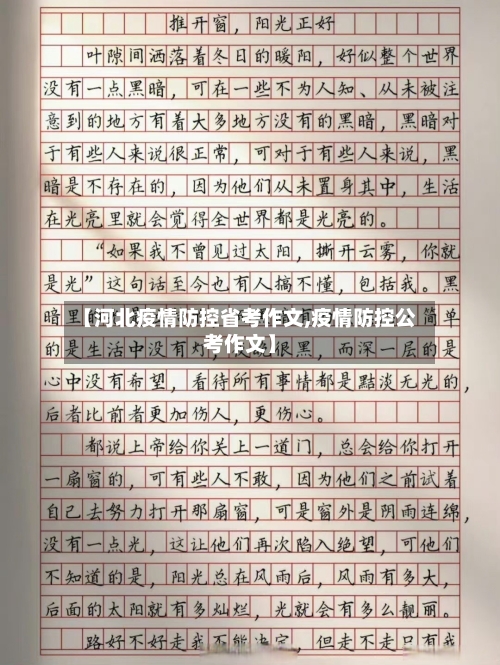 推开窗，阳光正好
叶隙间洒落着冬日的暖阳，好似整个世界
没有一点黑暗，可在一些不为人知、从未被注
意到的地方有着大多地方没有的黑暗，黑暗对
于有些人来说很正常，可对于有些人来说，黑
暗是不存在的，因为他们从未置身其中，生活
在光亮里就会觉得全世界都是光亮的。
“如果我不曾见过太阳，撕开云雾，你就
是光”这句话至今也有人搞不懂，包括我。黑
暗里的
简单
【河北疫情防控省考作文,疫情防控公
考作文】
的是生活中没有
很黑，而深一层的是
心中没有希望，看待所有事情都是黯淡无光的，
后者比前者更加伤人，更伤心。
都说上帝给你关上一道门，总会给你打开
一扇窗的，可有些人不敢，因为他们之前试着
自己去努力打开那扇窗，可是窗外是阴雨连绵，
没有一点光，这让他们再次陷入绝望，可他们
不知道的是，阳光总在风雨后，风雨有多大，
后面的太阳就有多灿烂，光就会有多么靓丽。
路好不好走我不能决定，但走不走只有我